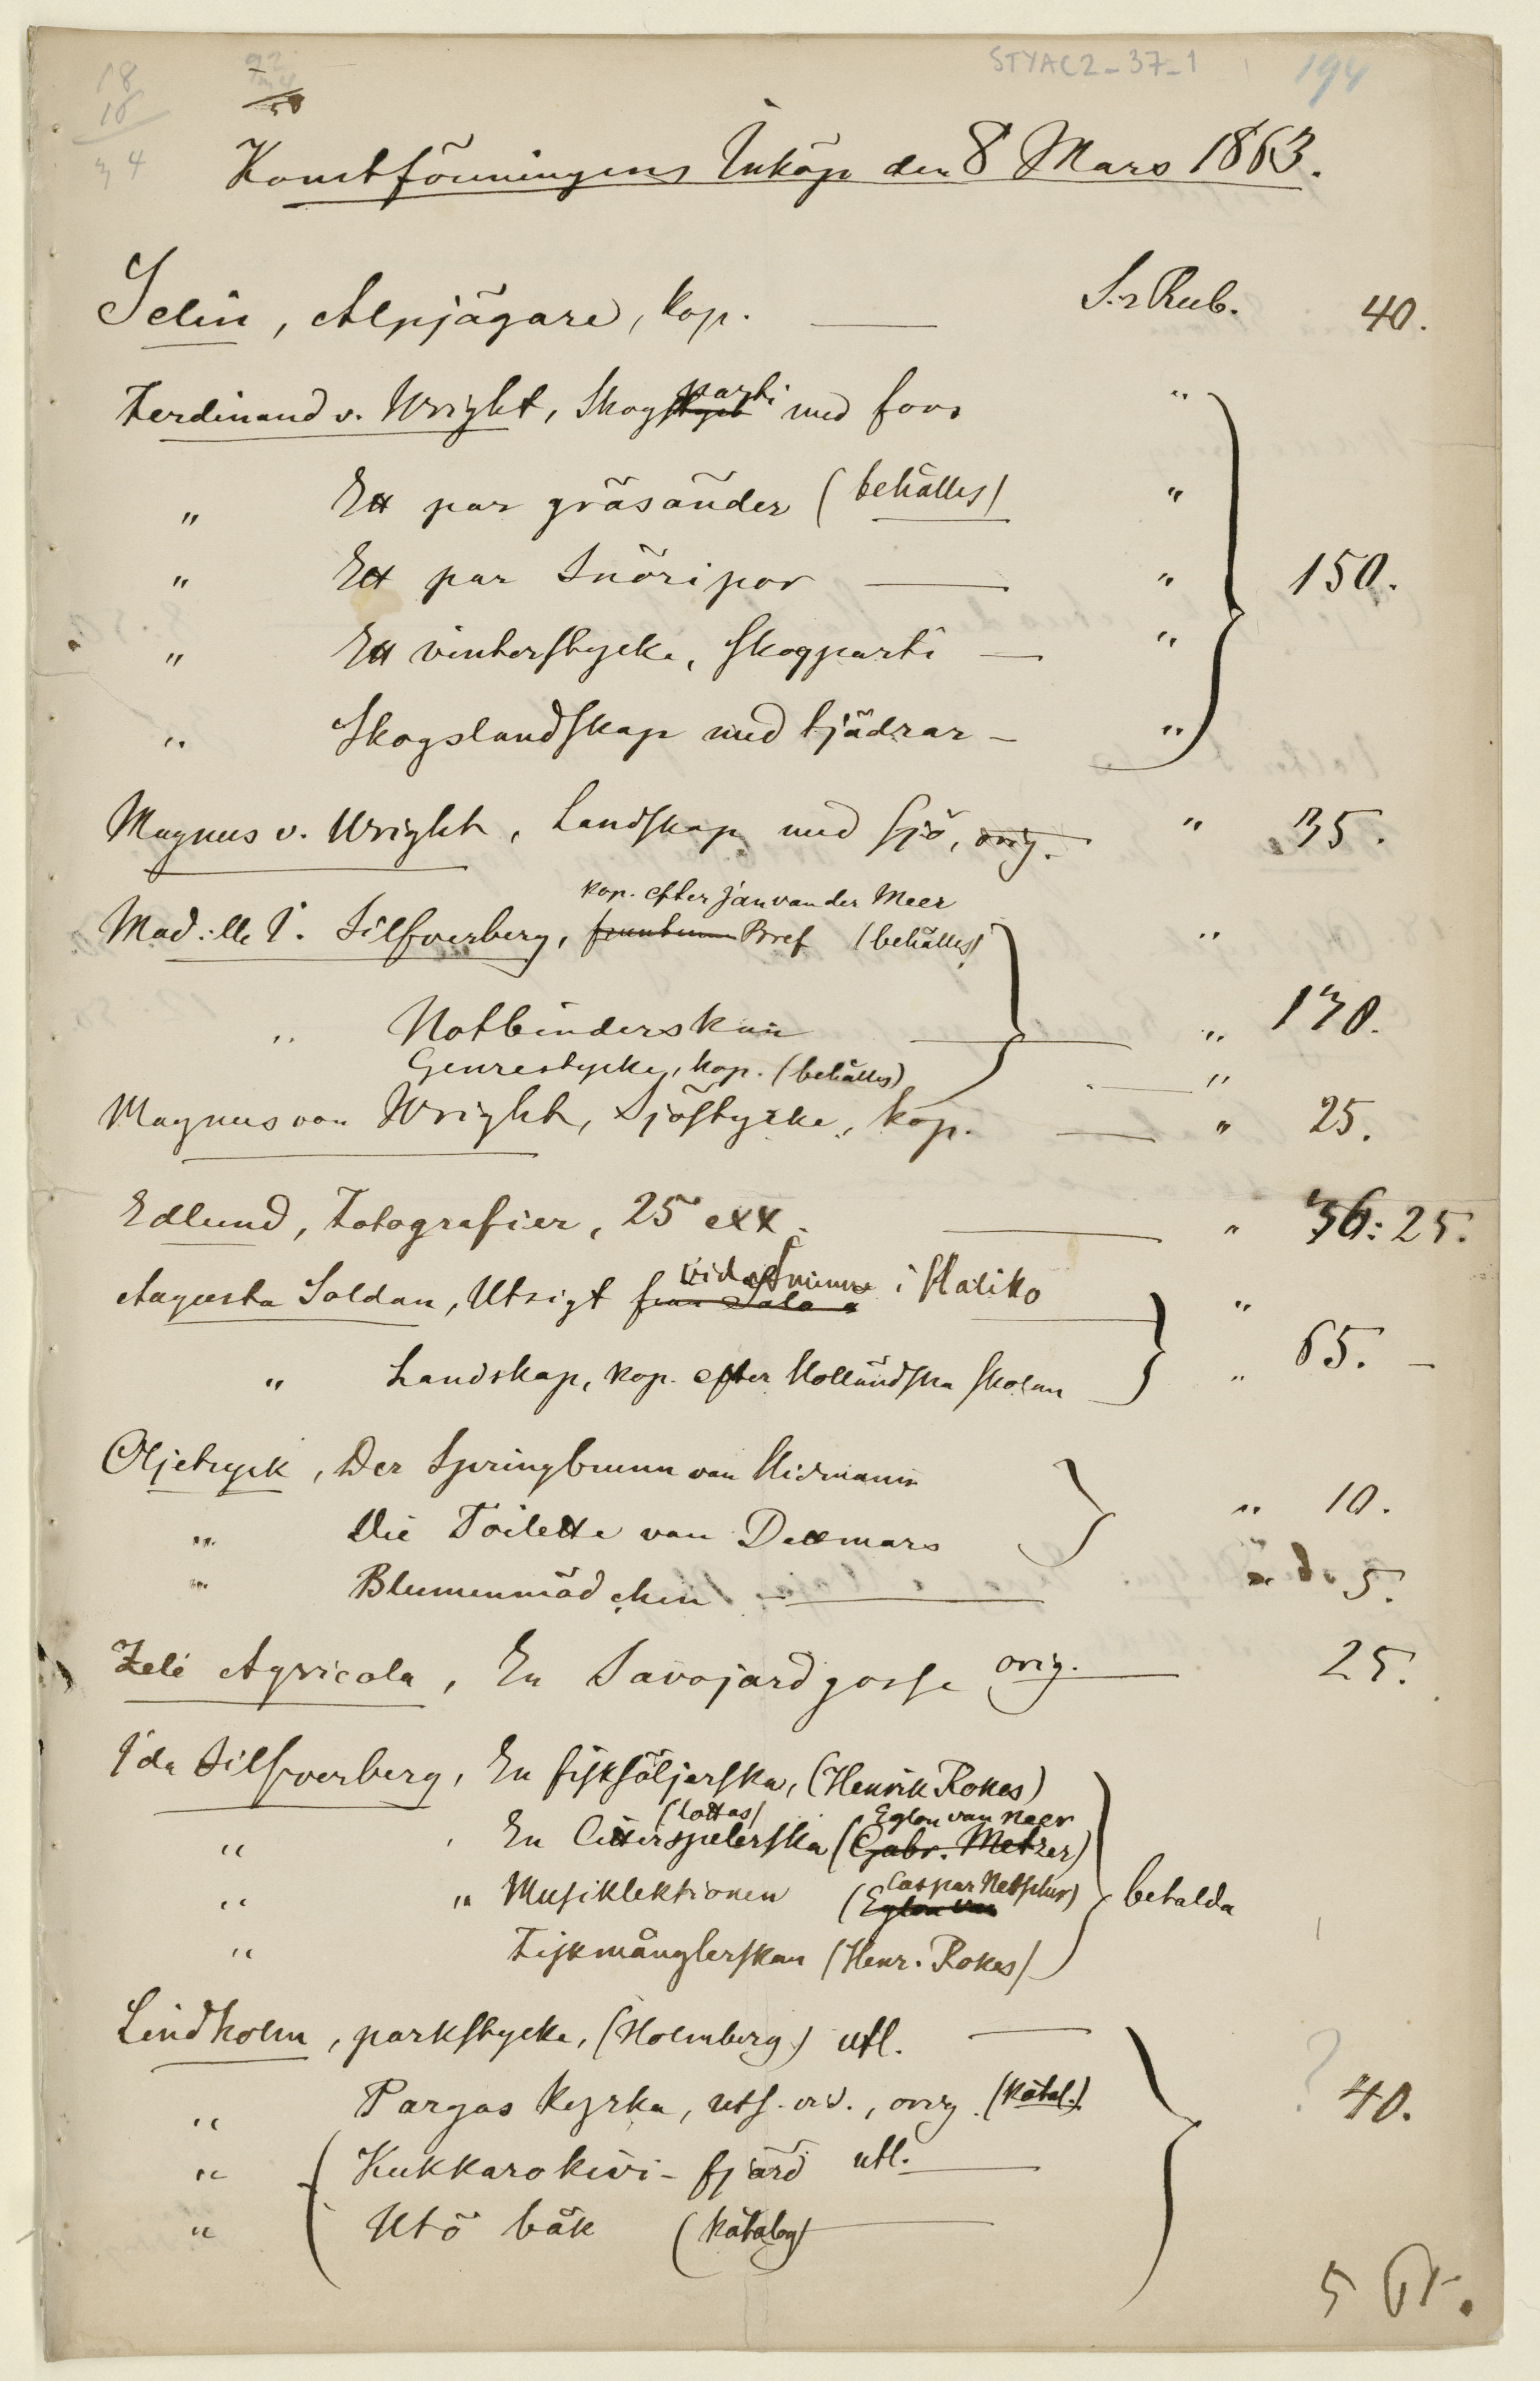 18
18
34
STYAC2-37-1
194
Konstföreningens Inköp den 8 Mars 1863.
Selin, Alpjägare, kop. — S:r Rub. 40.
Ferdinand v. Wright, Skogsparti med
" Ett par gräsänder (behålles) "
" Ett par Snöripor — " 150.
" Ett vinterstycke, Skogparti — "
" Skogslandskap med tjädrar — "
Magnus v. Wright, Landskap med sjö, orig. " 35.
kop. efter Jan van der Meer
Mad:lle I. Silfverberg, Bref (behålles) "
" Notbinderskan — " 130.
Genrestycke, kop. (behålles) — "
Magnus von Wright, Sjöstycke, kop. — " 25.
Edlund, Fotografier, 25 exx. — " 36:25.
Augusta Soldan, Utsigt vid i Haliko "
" Landskap, kop. efter Holländska skolan " 65. —
Oljetryck, Der Springbrunn von
" Die Toilette von " 10.
" Blumenmädchen — 5.
Zelé Agricola, En Savojardgosse orig. — 25.
Ida Silfverberg, En fisksäljerska, (Henrik Rokes)
(Lottas) Eglon van Neer
" En Citterspelerska (Gabr. Metzer)
Caspar Netscher)
" " Musiklektionen (Eglon van betalda
" Fiskmånglerskan (Henr. Rokes)
Lindholm, parkstycke, (Holmberg) utl. —
" Pargas kyrka, uts. vid., orig. (Katal.) ? 40.
" Kukkarokivi-fjärd utl. —
" Utö båk (Katalog) —